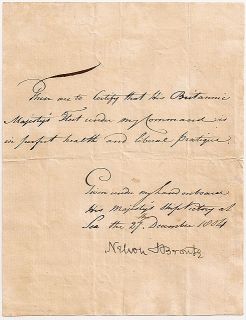 These are to Certify that His Britannic
Majesty's Fleet under my Command is
in perfect health and liberal pratique.
Given under my hand on board
His Majesty's Ship Victory at
Sea the 27 December 1804
Nelson & Bronte